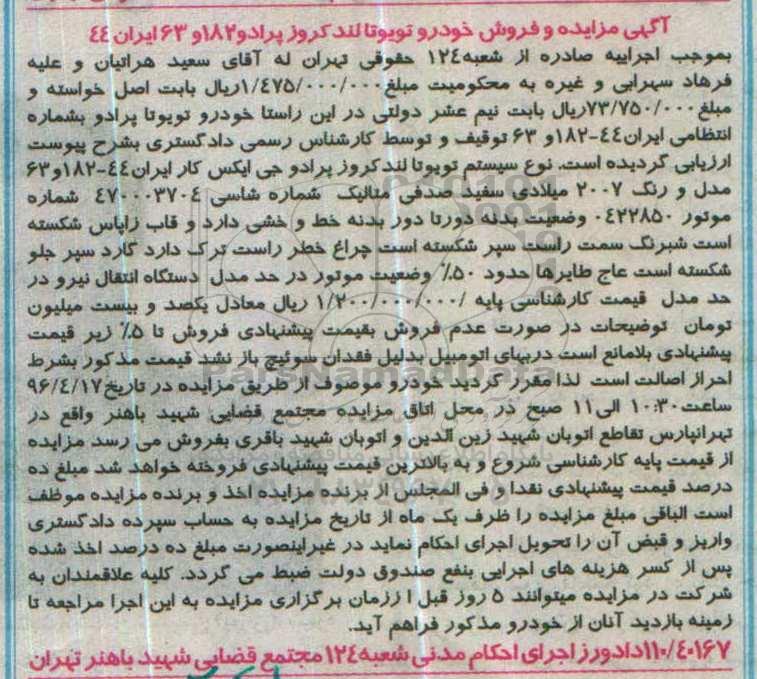 آگهی مزایده و فروش خودرو تویوتا لند کروز پرادو ۱۸۲و ۶۳ ایران ۴۴
بموجب اجراییه صادره از شعبه۱۲۴ حقوقی تهران له آقای سعید هراتیان و علیه
فرهاد سهرابی و غیره به محکومیت مبلغ۱/۴۷۵/۰۰۰/۰۰۰ریال بابت اصل خواسته و
مبلغ۷۳/۷۵۰/۰۰۰ریال بابت نیم عشر دولتی در این راستا خودرو تویوتا پرادو بشماره
انتظامی ایران۴۴-۱۸۲و ۶۳ توقیف و توسط کارشناس رسمی دادگستری بشرح پیوست
ارزیابی گردیده است. نوع سیستم تویوتا لند کروز پرادو جی ایکس کار ایران۴۴-۱۸۲و۶۳
مدل و رنگ ۲۰۰۷ میلادی سفید صدفی متالیک شماره شاسی ۴۷۰۰۰۳۷۰۴ شماره
موتور ۰۴۲۲۸۵۰ وضعیت بدنه دورتا دور بدنه خط و خشی دارد و قاب زاپاس شکسته
است شبرنگ سمت راست سپر شکسته است چراغ خطر راست ترک دارد گارد سپر جلو
شکسته است عاج طایرها حدود ۵۰٪ وضعیت موتور در حد مدل دستگاه انتقال نیرو در
حد مدل قیمت کارشناسی پایه /۱/۲۰۰/۰۰۰/۰۰۰ ریال معادل یکصد و بیست میلیون
تومان توضیحات در صورت عدم فروش بقیمت پیشنهادی فروش تا ۵٪ زیر قیمت
پیشنهادی بلامانع است دربهای اتومبیل بدلیل فقدان سوئیچ باز نشد قیمت مذکور بشرط
احراز اصالت است لذا مقرر گردید خودرو موصوف از طریق مزایده در تاریخ۹۶/۴/۱۷
ساعت۱۰:۳۰ الی۱۱ صبح در محل اتاق مزایده مجتمع قضایی شهید باهنر واقع در
تهرانپارس تقاطع اتوبان شهید زین الدین و اتوبان شهید باقری بفروش می رسد مزایده
از قیمت پایه کارشناسی شروع و به بالاترین قیمت پیشنهادی فروخته خواهد شد مبلغ ده
درصد قیمت پیشنهادی نقدا و فی المجلس از برنده مزایده اخذ و برنده مزایده موظف
است الباقی مبلغ مزایده را ظرف یک ماه از تاریخ مزایده به حساب سپرده دادگستری
واریز و قبض آن را تحویل اجرای احکام نماید در غیراینصورت مبلغ ده درصد اخذ شده
پس از کسر هزینه های اجرایی بنفع صندوق دولت ضبط می گردد. کلیه علاقمندان به
شرکت در مزایده میتوانند ۵ روز قبل ا ززمان برگزاری مزایده به این اجرا مراجعه تا
زمینه بازدید آنان از خودرو مذکور فراهم آید.
۱۱۰/۴۰۱۶۷دادورز اجرای احکام مدنی شعبه۱۲۴ مجتمع قضایی شهید باهنر تهران
ParsNamadData